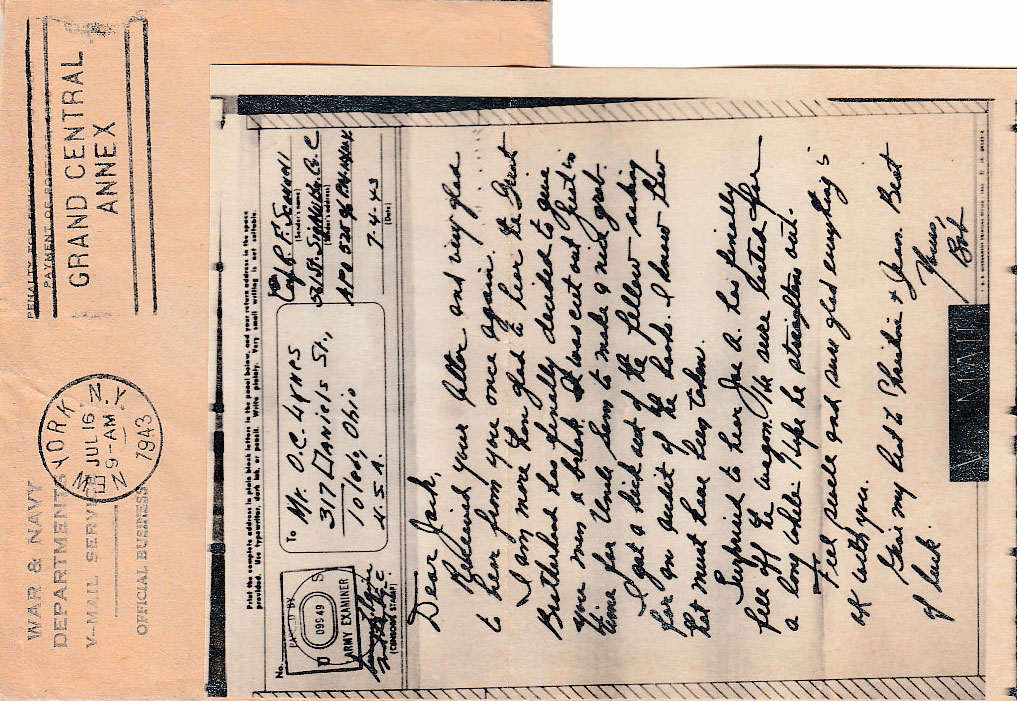 WAR & NAVY
DEPARTMENTS
V-MAIL SERVICE
OFFICIAL BUSINESS
NEW YORK, N.Y.
JUL 16
9-AM
1943
PENALTY FOR
PAYMENT OF POSTAGE,
GRAND CENTRAL
ANNEX
Print the complete address in plain block letters in the panel below, and your return address in the space
provided. Use typewriter, dark ink, or pencil. Write plainly. Very small writing is not suitable.
No.
PASSED BY
09549
ARMY EXAMINER
(CENSOR'S STAMP)
To
Mr. O.C. LYNTS
317 DANIELS ST.,
TOLEDO, OHIO
U.S.A.
(Sender's name)
(Sender's address)
APO 520 % PM
7-4-43
(Date)
Dear Jack,
Received your letter and very glad
to hear from you once again.
I am more than glad to hear the Great
Brotherland has finally decided to give
you men a break. It was cut out Just in
time for Uncle Sam to make a nice grab.
I got a kick out of the fellow asking
for an audit of the books. I know the
hat must have been taken.
Surprised to hear Joe A. has finally
fell off the wagon. He sure lasted for
a long while. Hope he straightens out.
Feel swell and sure glad everything's
ok with you.
Give my best to Christine & Jean. Best
of luck.
Yours
Bob
V - MAIL